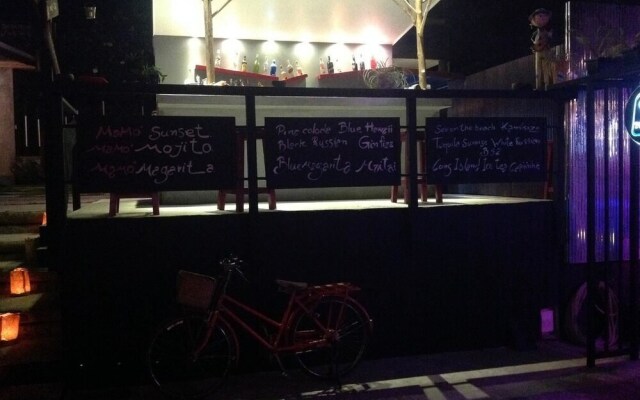 MoMo' Sunset
MoMo' Mojito
MoMo' Magarita
Pine colada Blue Hawaii
Black Russian Gimlet
Bluemagarita Mai tai
Sex on the beach Kamikaze
Tequila Sunrise White Russian
Long Island Ice tea